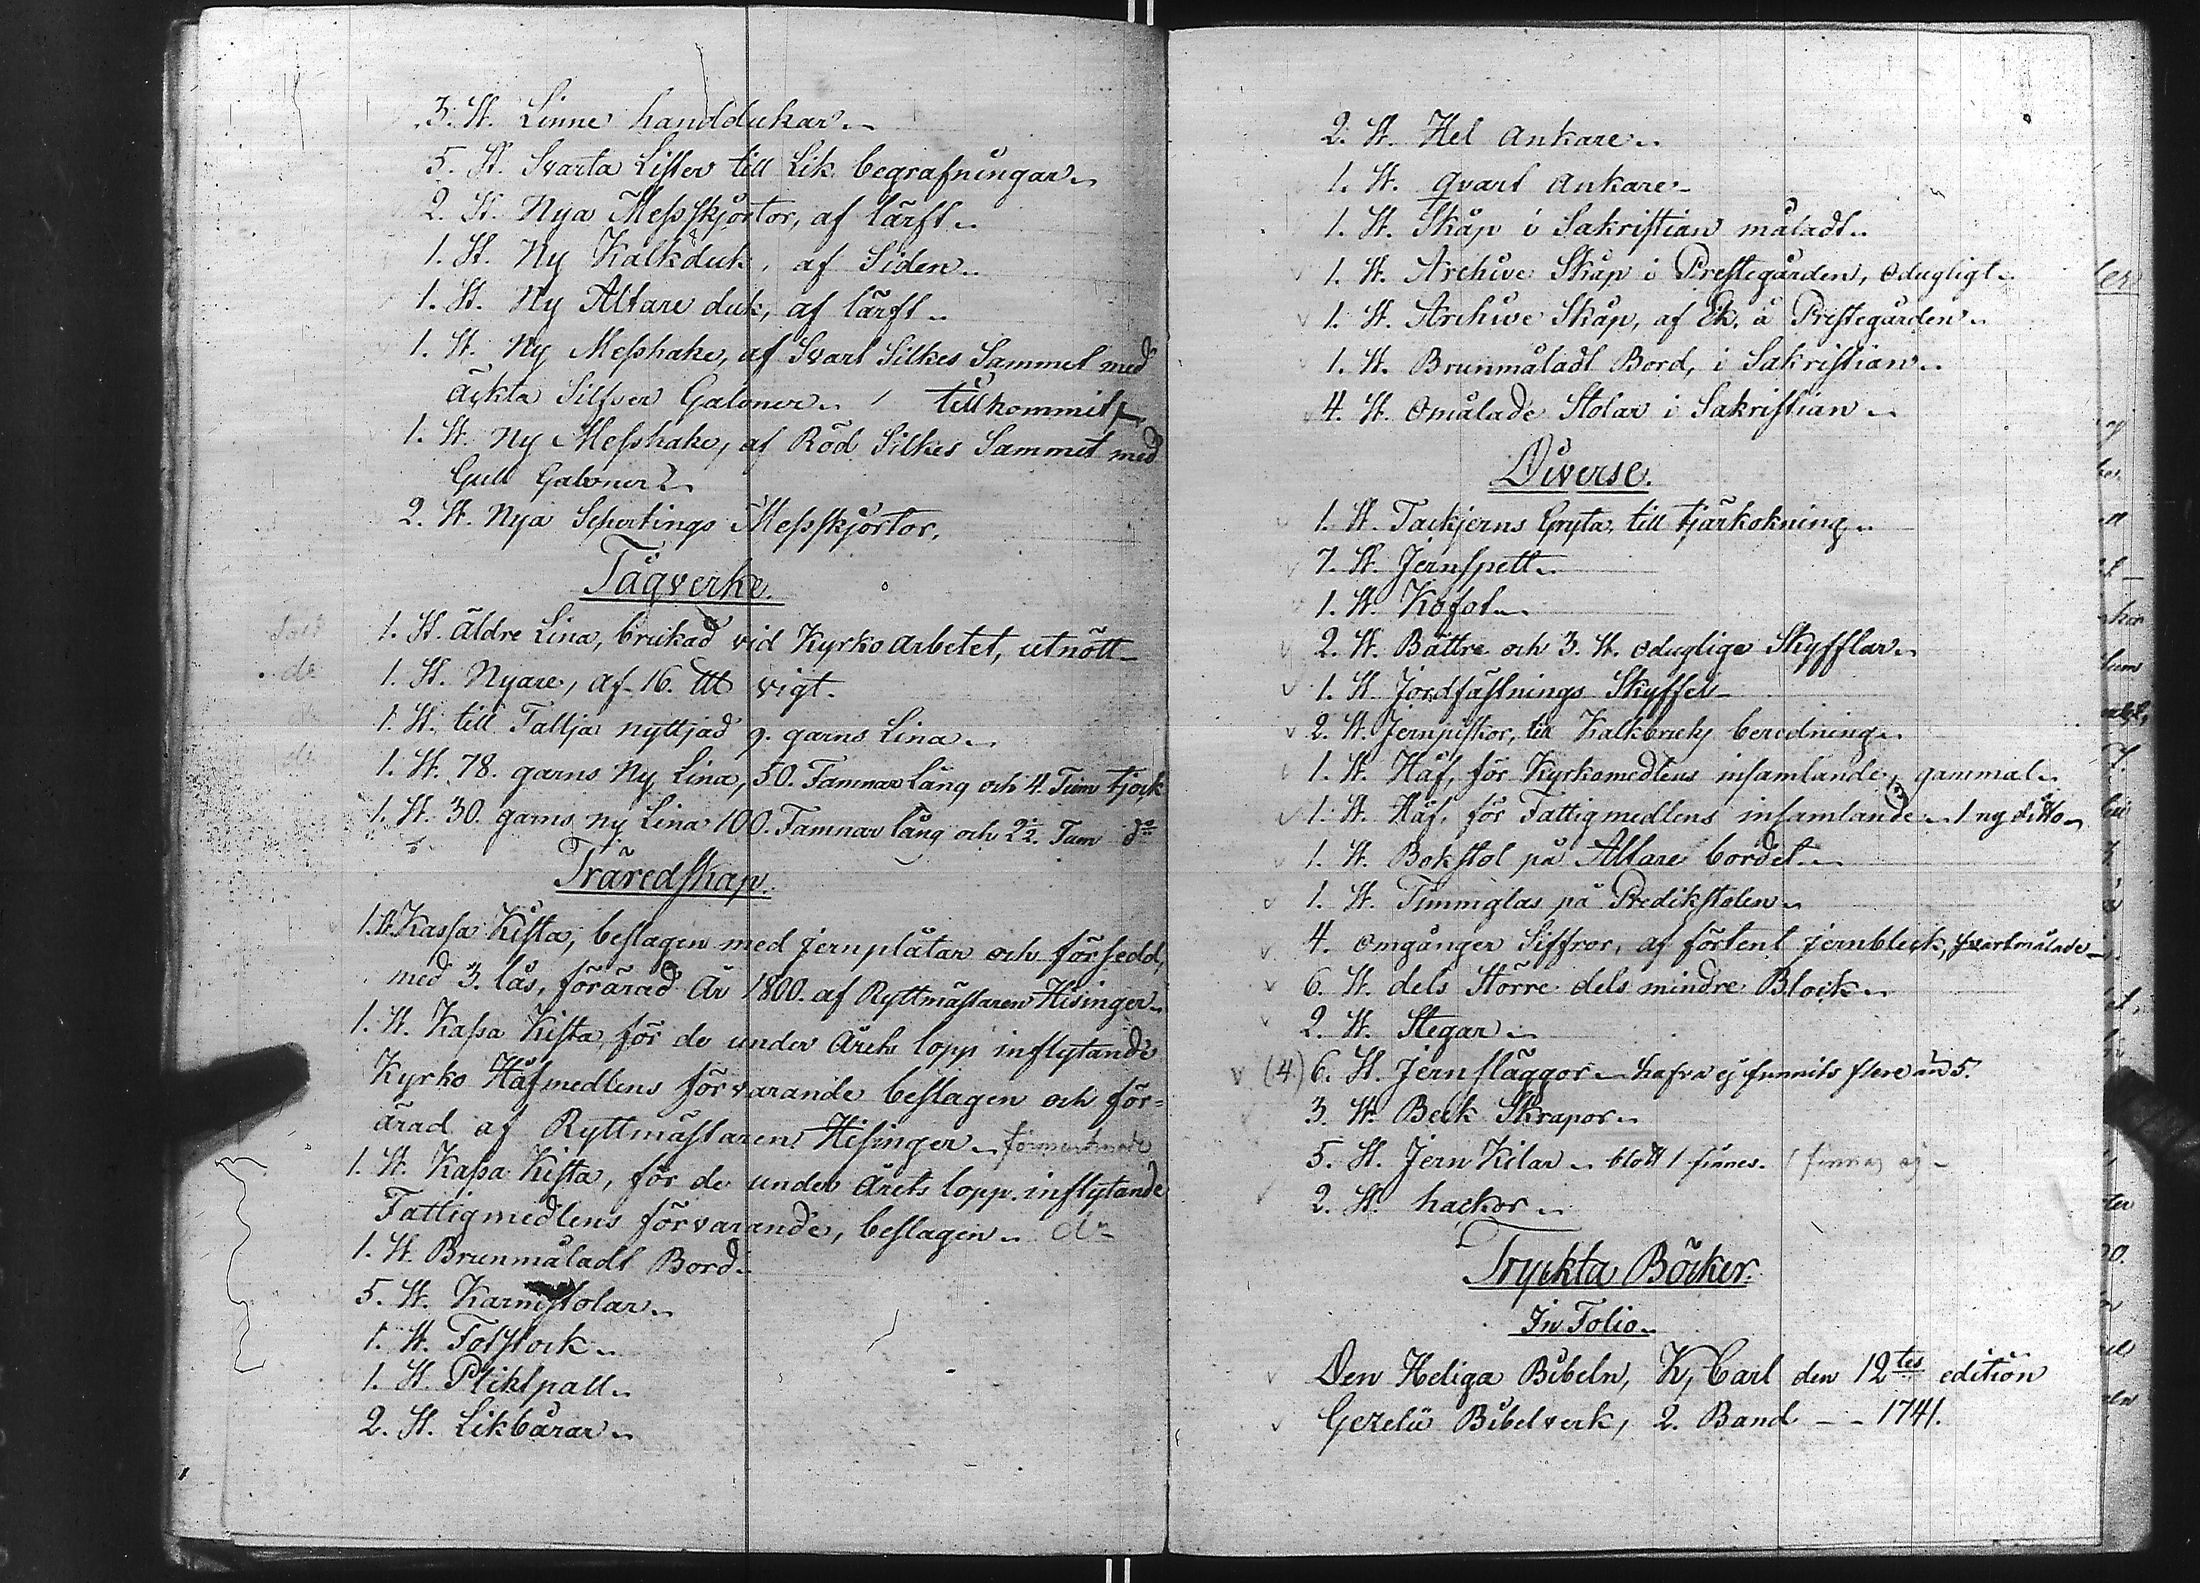 3. St. Linne handdukar.
5. St. Svarta Lister till Lik begrafningar.
2. St. Nya Messskjortor, af lärft.
1. St. Ny Kalkduk, af Siden.
1. St. Ny Altare duk, af lärft.
1. St. Ny Messhake, af Svart Silkes Sammet med
äckta Silfver Galoner. tillkommit
1. St. Ny Messhake, af Röd Silkes Sammet med
Gull Galoner
2. St. Nya Schertings Messskjortor.
Tågverke.
1. St. äldre Lina, brukad vid Kyrko arbetet, utnött
1. St. Nyare, af 16. ℔ vigt.
1. St. till Tallja nyttjad 9. garns Lina.
1. St. 78. garns Ny Lina, 50. Famnar lång och 4. Tum tjock
1. St. 30. garns ny Lina 100. Famnar lång och 2½. Tum do
Träredskap.
1. St. Kassa Kista, beslagen med jernplåtar och försedd,
med 3. lås, förärad År 1800. af Ryttmästaren Hisinger.
1. St. Kassa Kista, för de under Årets lopp inflytande
Kyrko Håfmedlens förvarande beslagen och för=
ärad af Ryttmästaren Hisinger.
1. St. Kassa Kista, för de under Årets lopp inflytande
Fattigmedlens förvarande, beslagen. do
1. St. Brunmåladt Bord.
5. St. Karmstolar.
1. St. Fotstock.
1. St. Pliktpall.
2. St. Likbårar.
2. St. Hel ankare.
1. St. qvart ankare.
1. St. Skåp i Sakristian måladt.
1. St. Archive Skåp i Prestegården, odugligt.
1. St. Archive Skåp, af Ek, å Prestegården.
1. St. Brunmåladt Bord, i Sakristian.
4. St. Omålade Stolar i Sakristian.
Diverse.
1. St. Tackjerns Gryta till tjärkokning.
7. St. Jernspett.
1. St. Kofot.
2. St. Bättre och 3. St. oduglige Skyfflar.
1. St. Jordfästnings Skyffel
2. St. Jernpiskor, till Kalkbruks beredning.
1. St. Håf, för Kyrkomedlens insamlande, gammal.
1. St. Håf, för Fattigmedlens insamlande. 1 ny ditto
1. St. Bokstol på Altare bordet.
1. St. Timmglas på Predikstolen.
4. omgånger Siffror, af förtent jernbleck, svartmålade.
6. St. dels Större dels mindre Block.
2. St. Stegar.
(4.) 6. St. Jernsläggor. hafva ej funnits flere än 5.
3. St. Beck Skrapor.
5. St. Jern Kilar. blott 1 finnes. 1 finnes ej
2. St. hackor.
Tryckta Böcker.
In Folio.
Den Heliga Bibeln, K, Carl den 12tes edition
Gezelii Bibelverk, 2. Band - - 1741.